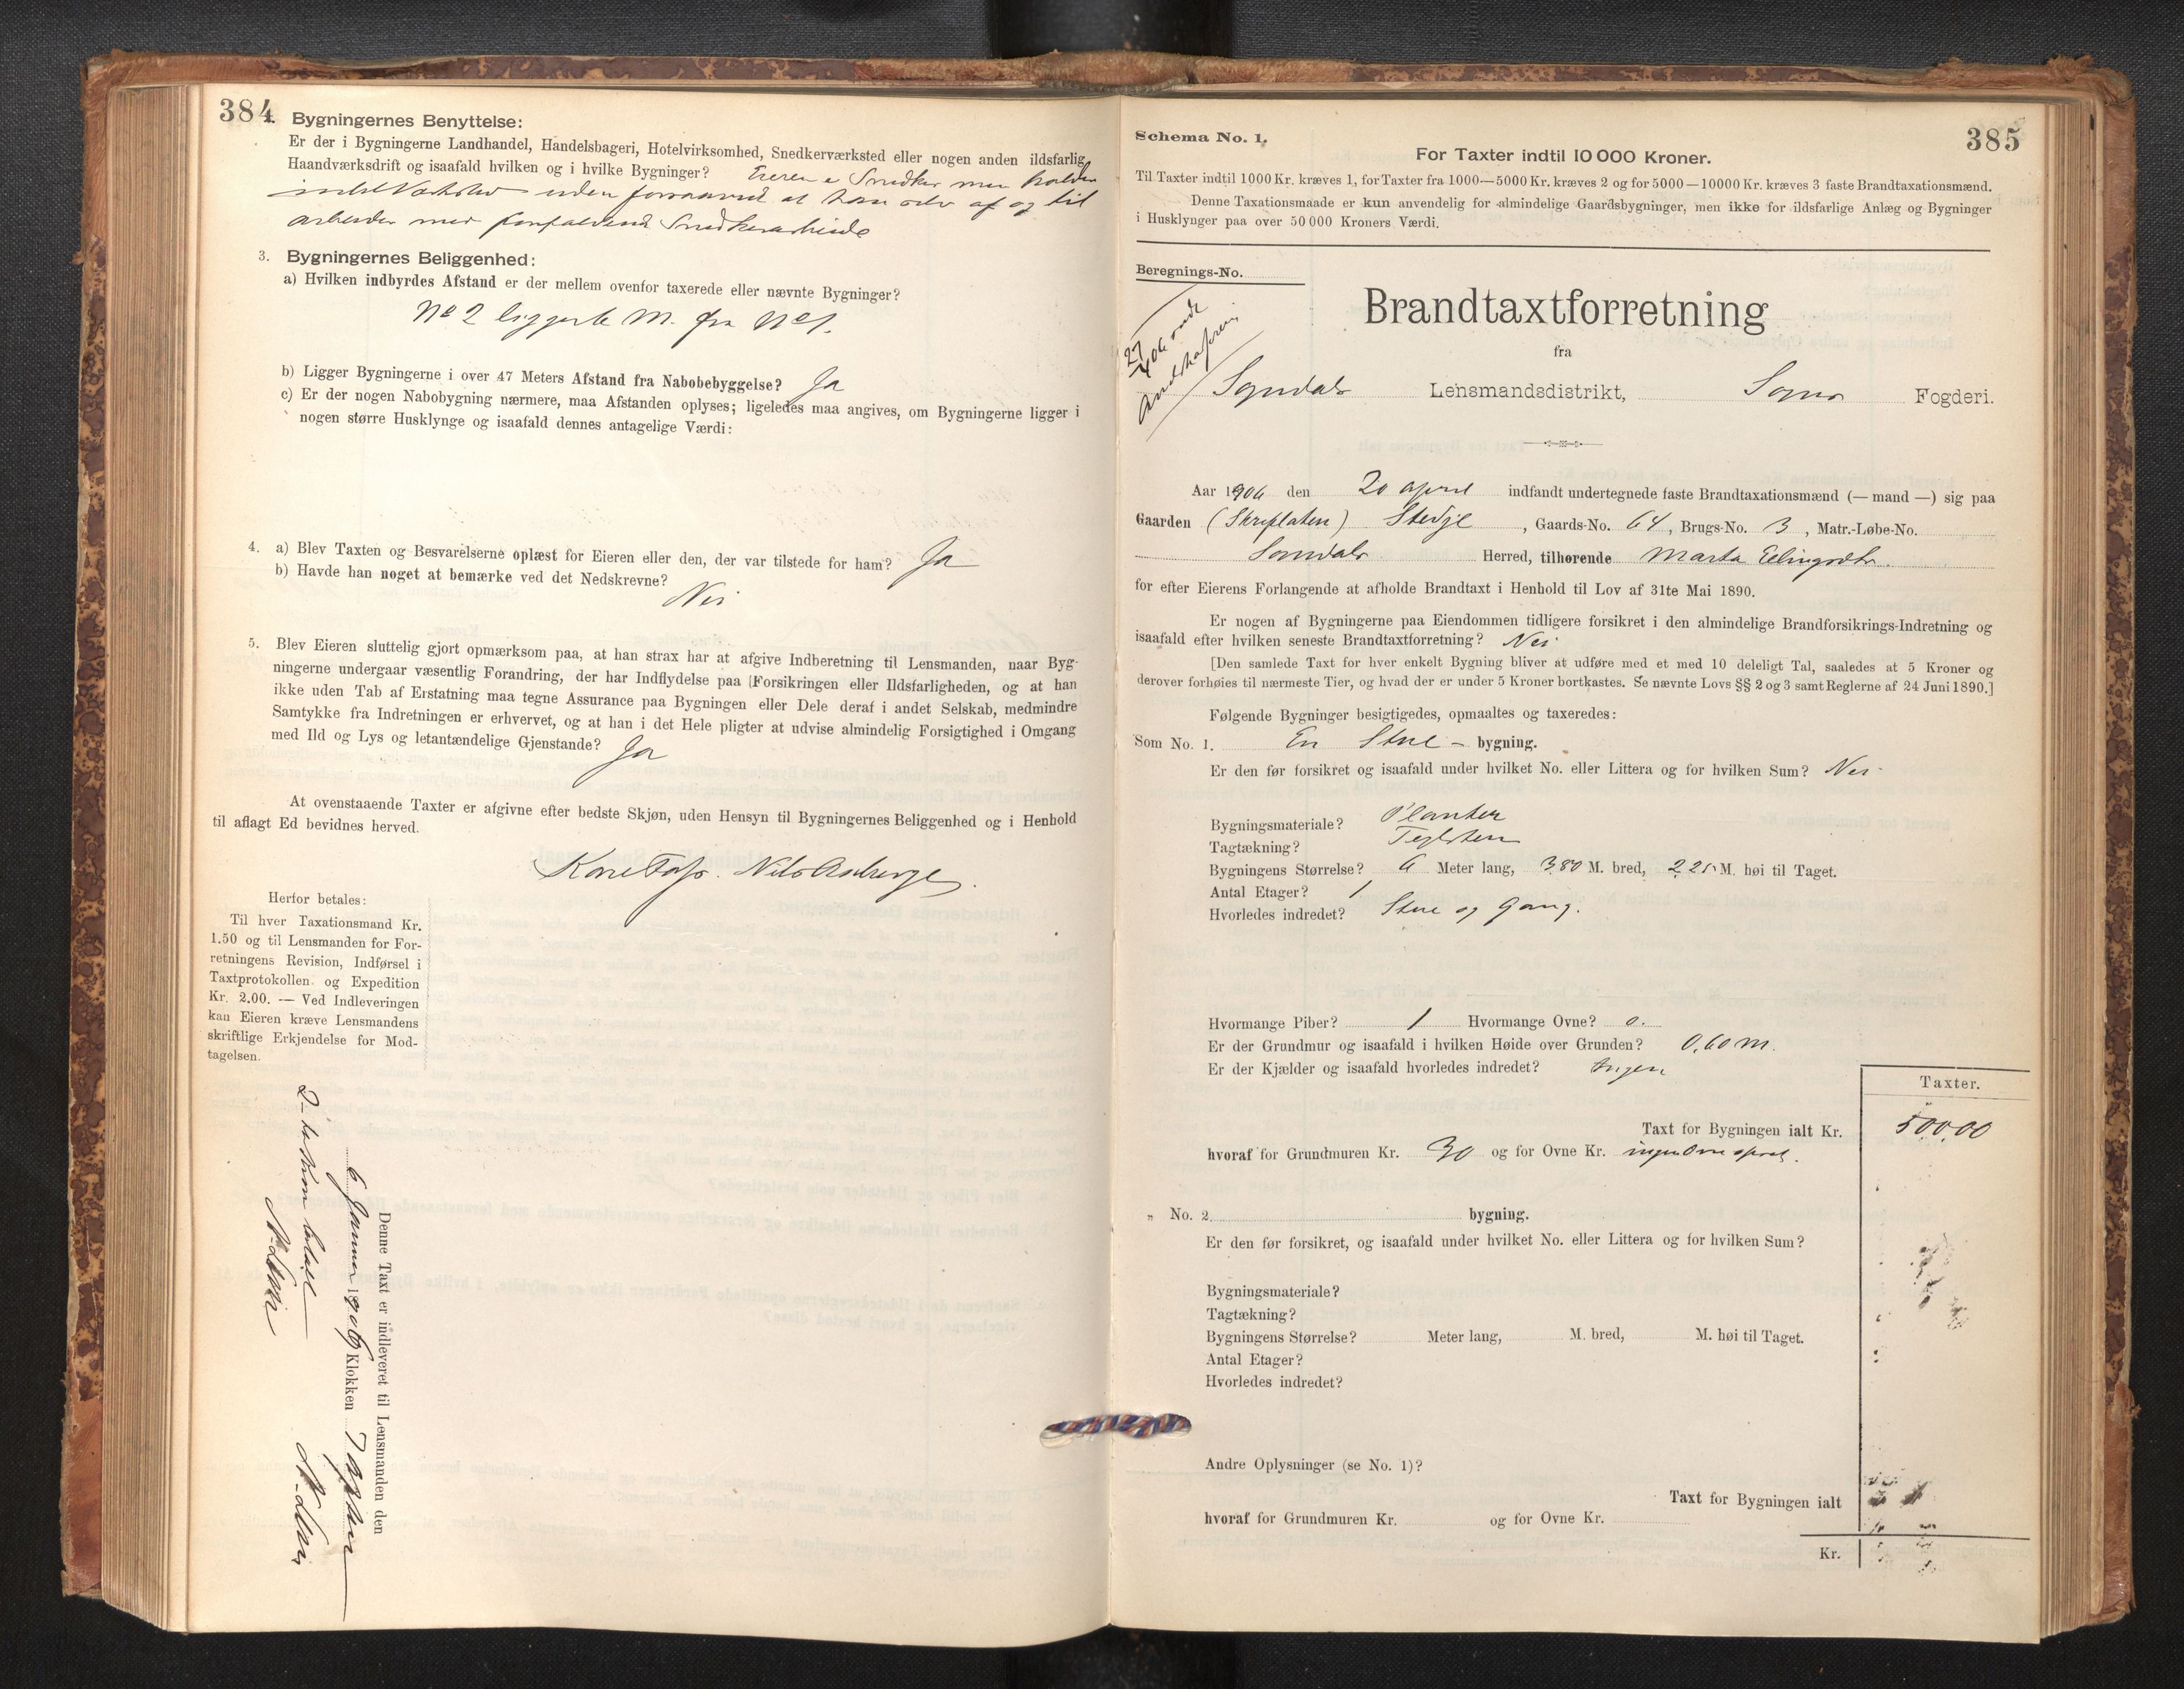 384
2. Bygningernes Benyttelse:
Er der i Bygningerne Landhandel, Handelsbageri, Hotelvirksomhed, Snedkerværksted eller nogen anden ildsfarlig
Haandværksdrift og isaafald hvilken og i hvilke Bygninger? Eieren e Snedker men holder
intet Værksted uden forsaavidt at han selv af og til
arbeider med forefaldende Snedkerarbeide
3. Bygningernes Beliggenhed:
a) Hvilken indbyrdes Afstand er der mellem ovenfor taxerede eller nævnte Bygninger?
No 2 ligger 6 M. fra No 1.
b) Ligger Bygningerne i over 47 Meters Afstand fra Nabobebyggelse? Ja
c) Er der nogen Nabobygning nærmere, maa Afstanden oplyses; ligeledes maa angives, om Bygningerne ligger i
nogen større Husklynge og isaafald dennes antagelige Værdi:
4. a) Blev Taxten og Besvarelserne oplæst for Eieren eller den, der var tilstede for ham? Ja
b) Havde han noget at bemærke ved det Nedskrevne?
Nei
5. Blev Eieren sluttelig gjort opmærksom paa, at han strax har at afgive Indberetning til Lensmanden, naar Byg-
ningerne undergaar væsentlig Forandring, der har Indflydelse paa Forsikringen eller Ildsfarligheden, og at han
ikke uden Tab af Erstatning maa tegne Assurance paa Bygningen eller Dele deraf i andet Selskab, medmindre
Samtykke fra Indretningen er erhvervet, og at han i det Hele pligter at udvise almindelig Forsigtighed i Omgang
med Ild og Lys og letantændelige Gjenstande? Ja
At ovenstaaende Taxter er afgivne efter bedste Skjøn, uden Hensyn til Bygningernes Beliggenhed og i Henhold
til aflagt Ed bevidnes herved.
Nils
Herfor betales:
Til hver Taxationsmand Kr.
1.50 og til Lensmanden for For-
retningens Revision, Indførsel i
Taxtprotokollen og Expedition
Kr. 2.00. — Ved Indleveringen
kan Eieren kræve Lensmandens
skriftlige Erkjendelse for Mod-
tagelsen.
Denne Taxt er indleveret til Lensmanden den
6 Januar 1906 Klokken 7 aften
2- to Kroner betalt
385
Schema No. 1.
For Taxter indtil 10 000 Kroner.
Til Taxter indtil 1000 Kr. kræves 1, for Taxter fra 1000—5000 Kr. kræves 2 og for 5000—10000 Kr. kræves 3 faste Brandtaxationsmænd.
Denne Taxationsmaade er kun anvendelig for almindelige Gaardsbygninger, men ikke for ildsfarlige Anlæg og Bygninger
i Husklynger paa over 50 000 Kroners Værdi.
Beregnings-No.
Brandtaxtforretning
fra
Sogndals Lensmandsdistrikt, Sogns Fogderi.
Aar 1906 den 20 april indfandt undertegnede faste Brandtaxationsmænd (— mand —) sig paa
Gaarden (Skriplaten) Stedje, Gaards-No. 64, Brugs-No. 3, Matr.-Løbe-No.
Sogndals Herred, tilhørende Marta Ellingsdtr.
for efter Eierens Forlangende at afholde Brandtaxt i Henhold til Lov af 31te Mai 1890.
Er nogen af Bygningerne paa Eiendommen tidligere forsikret i den almindelige Brandforsikrings-Indretning og
isaafald efter hvilken seneste Brandtaxtforretning? Nei
[Den samlede Taxt for hver enkelt Bygning bliver at udføre med et med 10 deleligt Tal, saaledes at 5 Kroner og
derover forhøies til nærmeste Tier, og hvad der er under 5 Kroner bortkastes. Se nævnte Lovs §§ 2 og 3 samt Reglerne af 24 Juni 1890.]
Følgende Bygninger besigtigedes, opmaaltes og taxeredes:
Som No. 1. En Stue - bygning.
Er den før forsikret og isaafald under hvilket No. eller Littera og for hvilken Sum? Nei
Bygningsmateriale? Planker
Tagtækning? Teglsten
Bygningens Størrelse? 6 Meter lang, 3,80 M. bred, 2,25 M. høi til Taget.
Antal Etager? 1
Hvorledes indredet? Stue og Gang.
Hvormange Piber? 1 Hvormange Ovne? 0.
Er der Grundmur og isaafald i hvilken Høide over Grunden? 0,60 m.
Er der Kjælder og isaafald hvorledes indredet? Ingen
Taxter.
Taxt for Bygningen ialt Kr. 500,00
hvoraf for Grundmuren Kr. 30 og for Ovne Kr. ingen Ovne
„ No. 2 bygning.
Er den før forsikret, og isaafald under hvilket No. eller Littera og for hvilken Sum?
Bygningsmateriale?
Tagtækning?
Bygningens Størrelse? Meter lang, M. bred, M. høi til Taget.
Antal Etager?
Hvorledes indredet?
Andre Oplysninger (se No. 1)?
Taxt for Bygningen ialt
hvoraf for Grundmuren Kr. og for Ovne Kr.
Kr.